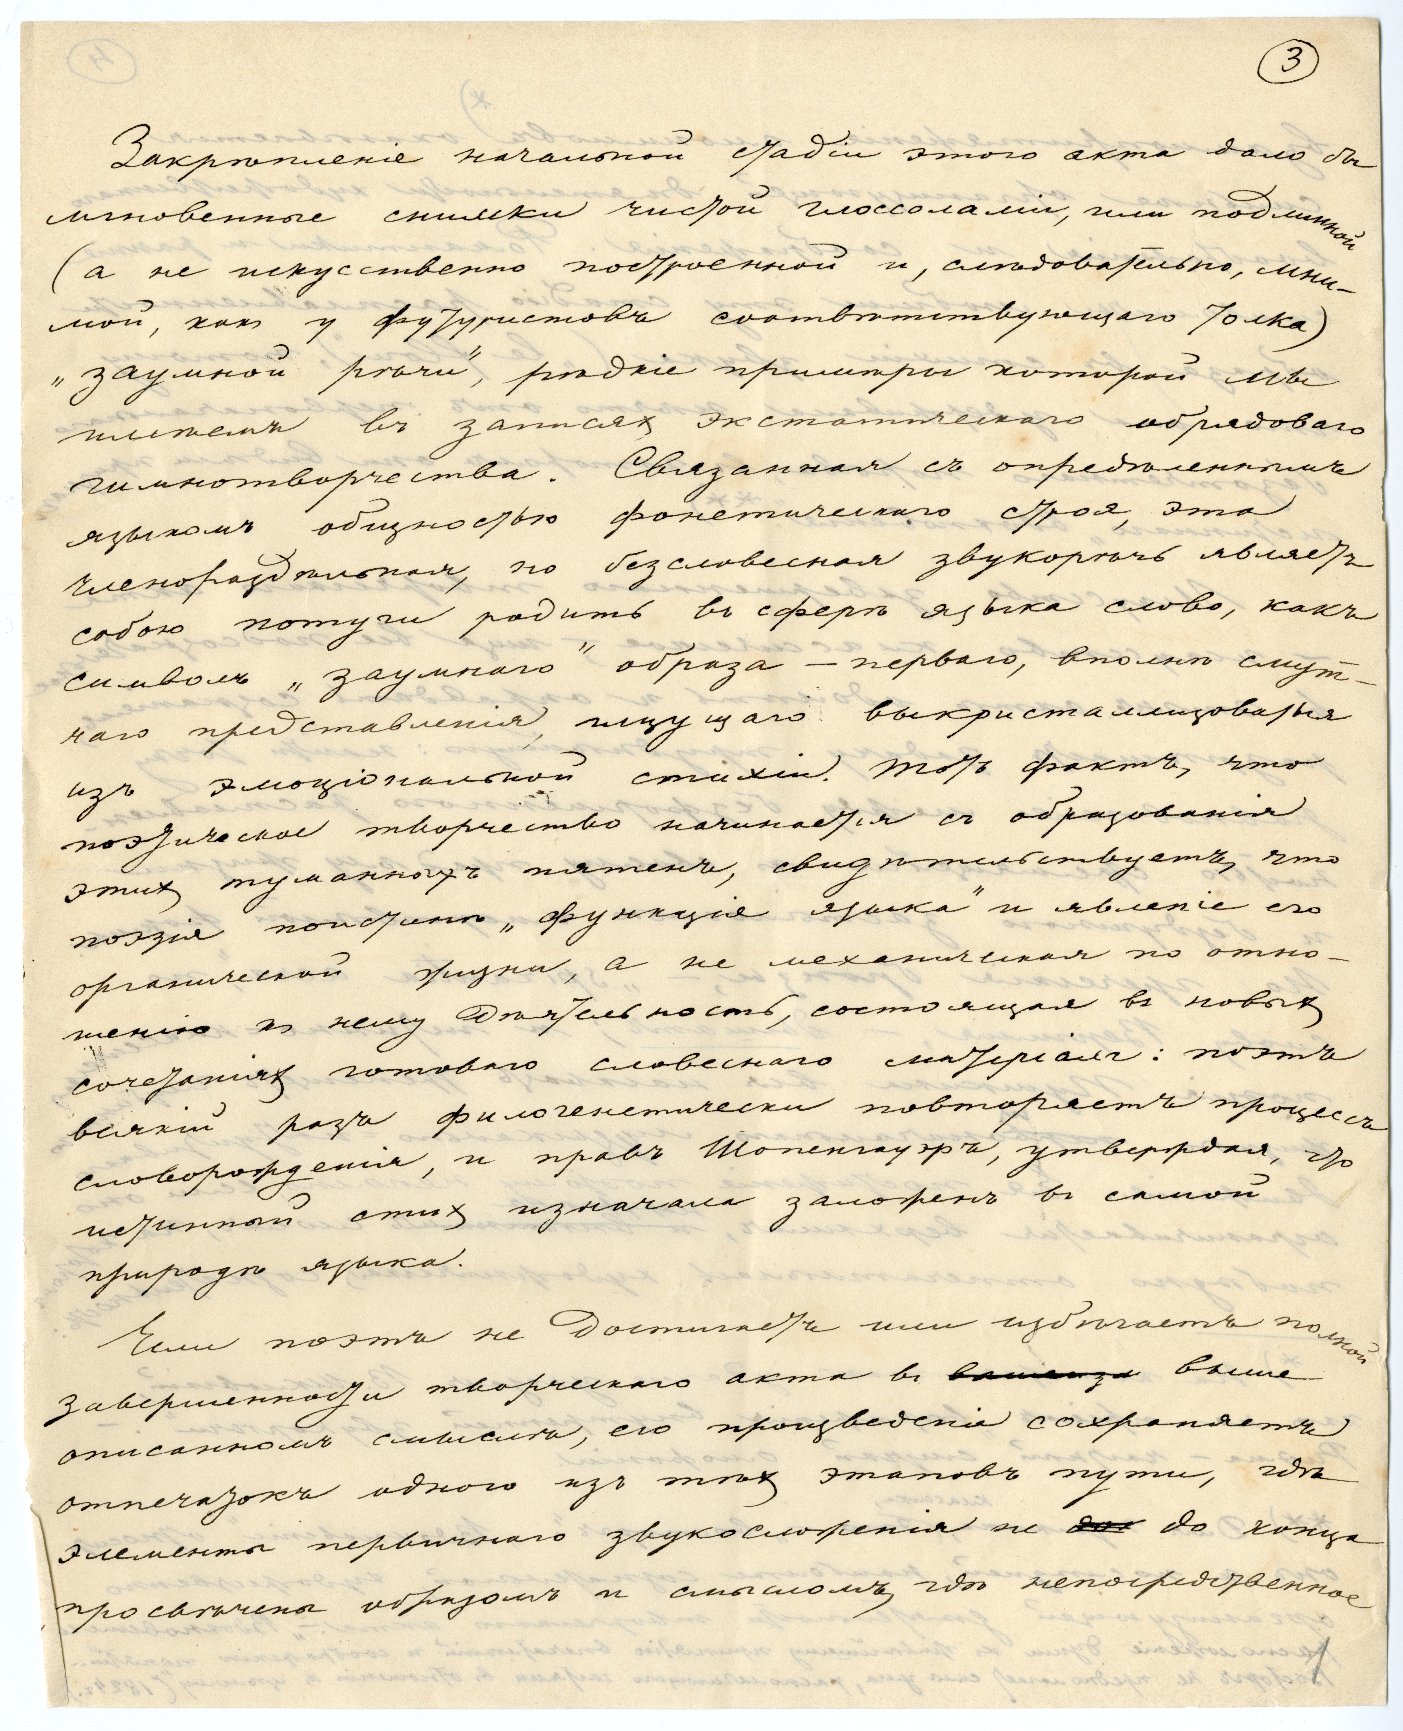 3
Закрѣпленіе начальной стадіи этого акта дало бы
мгновенные снимки чистой глоссолаліи, или подлинной
(а не искусственно построенной и, слѣдовательно, мни-
мой, какъ у футуристовъ соотвѣтствующаго толка)
„заумной рѣчи", рѣдкіе примѣры которой мы
имѣемъ въ записяхъ экстатическаго обрядоваго
гимнотворчества. Связанная съ опредѣленнымъ
языкомъ общностью фонетическаго строя, эта
членораздѣльная, но безсловесная звукорѣчь являетъ
собою потуги родить въ сферѣ языка слово, какъ
символъ „заумнаго" образа — перваго, вполнѣ смут-
наго представленія, ищущаго выкристаллизоваться
изъ эмоціональной стихіи. Тотъ фактъ, что
поэтическое творчество начинается съ образованія
этихъ туманныхъ пятенъ, свидѣтельствуетъ, что
поэзія поистинѣ „функція языка" и явленіе его
органической жизни, а не механическая по отно-
шенію къ нему дѣятельность, состоящая въ новыхъ
сочетаніяхъ готоваго словеснаго матеріала: поэтъ
всякій разъ филогенетически повторяетъ процессъ
словорожденія, и правъ Шопенгауэръ, утверждая, что
истинный стихъ изначала заложенъ въ самой
природѣ языка.
Если поэтъ не достигаетъ или избѣгаетъ полной
завершенности творческаго акта въ выше
описанномъ смыслѣ, его произведеніе сохраняетъ
отпечатокъ одного изъ тѣхъ этаповъ пути, гдѣ
элементы первичнаго звукосложенія не до конца
просвѣчены образомъ и смысломъ, гдѣ непосредственное
1